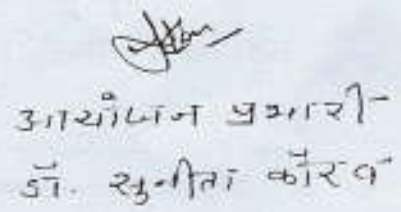 आयोजन प्रभारी
डॉ. सुनीता कौरव